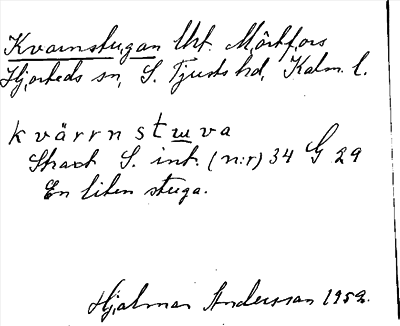 Kvarnstugan Uht. Mörtfors
Hjorteds sn, S. Tjusts hd, Kalm. l.
kvärrnstuva
Strax S. int. (n:r) 34 G 29
En liten stuga.
Hjalmar Andersson 1952.